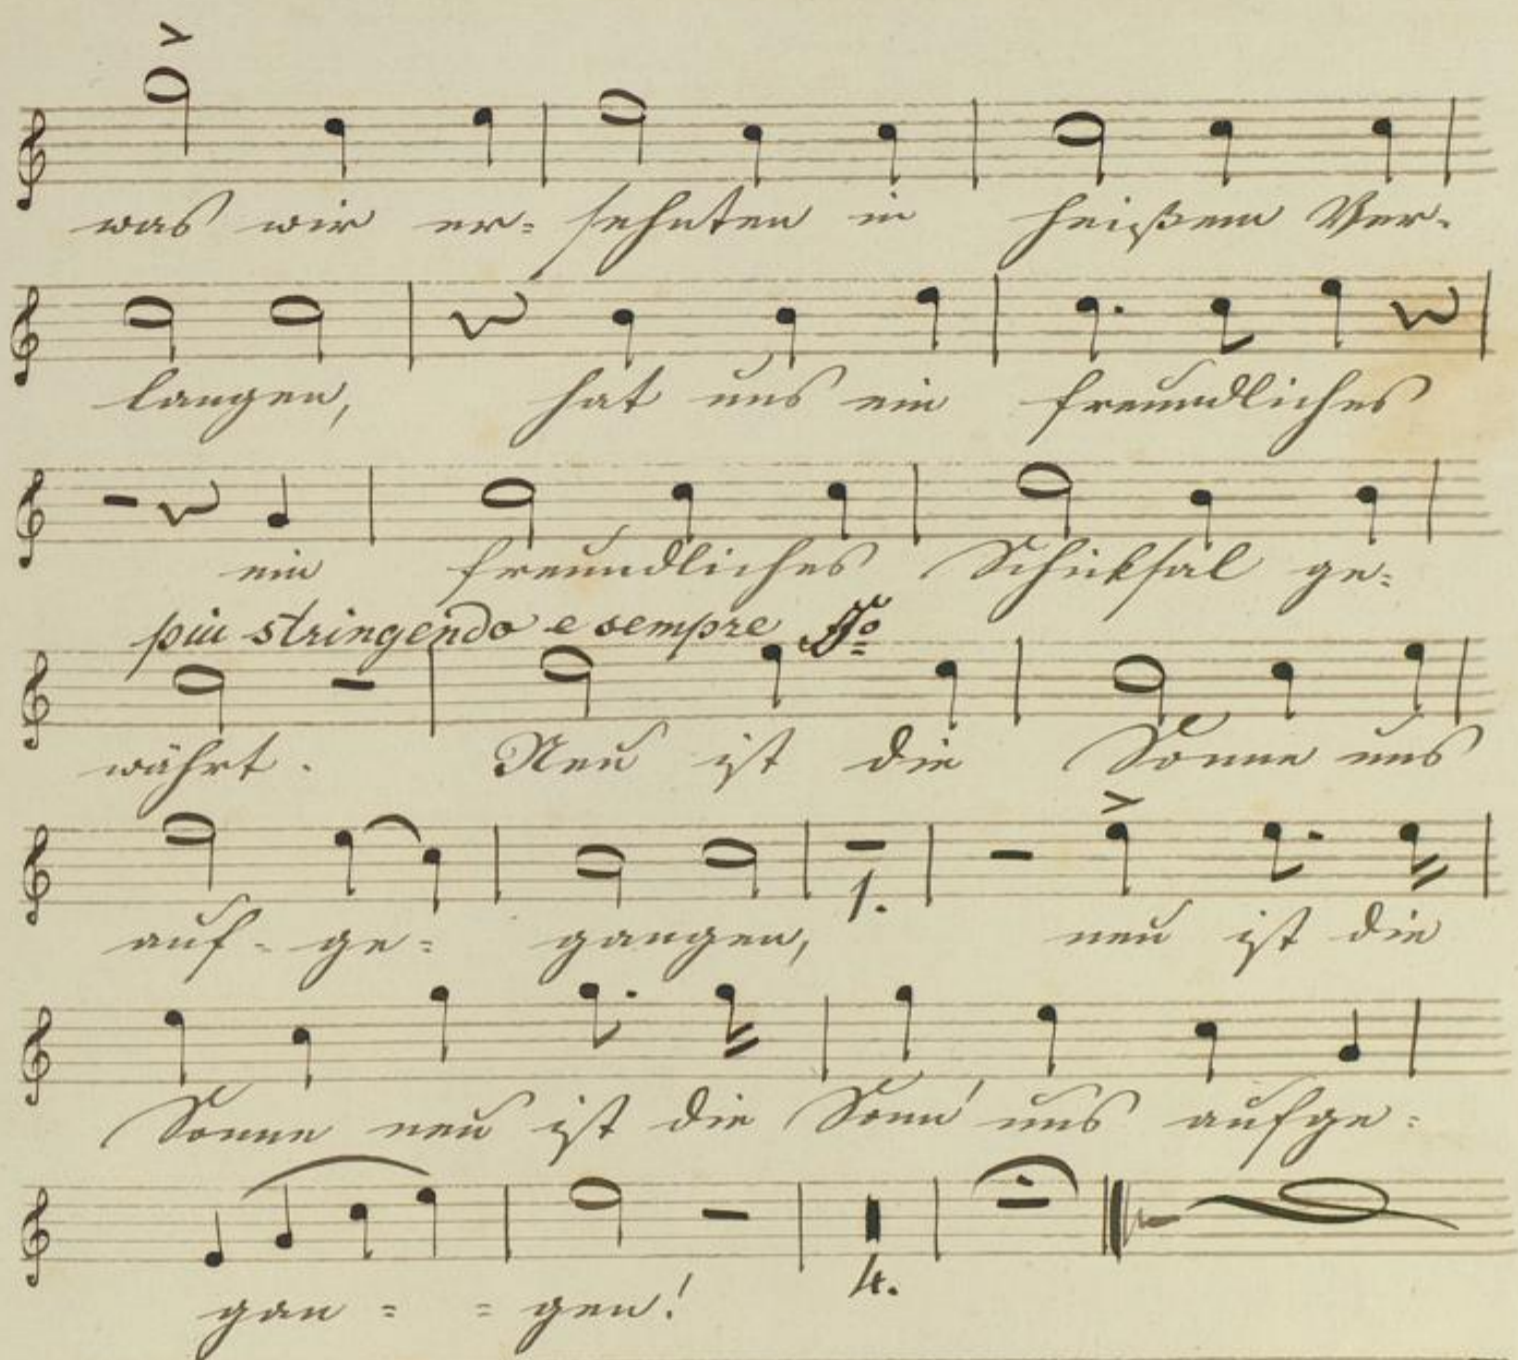 was wir er= sehnten in heißem Ver-
langen, hat uns ein freundliches
ein freundliches Schicksal ge=
piu stringendo e sempre ffo
währt. Neu ist die Sonne uns
1.
auf- ge= gangen, neu ist die
Sonne neu ist die Sonn' uns aufge=
4.
gan = = gen!